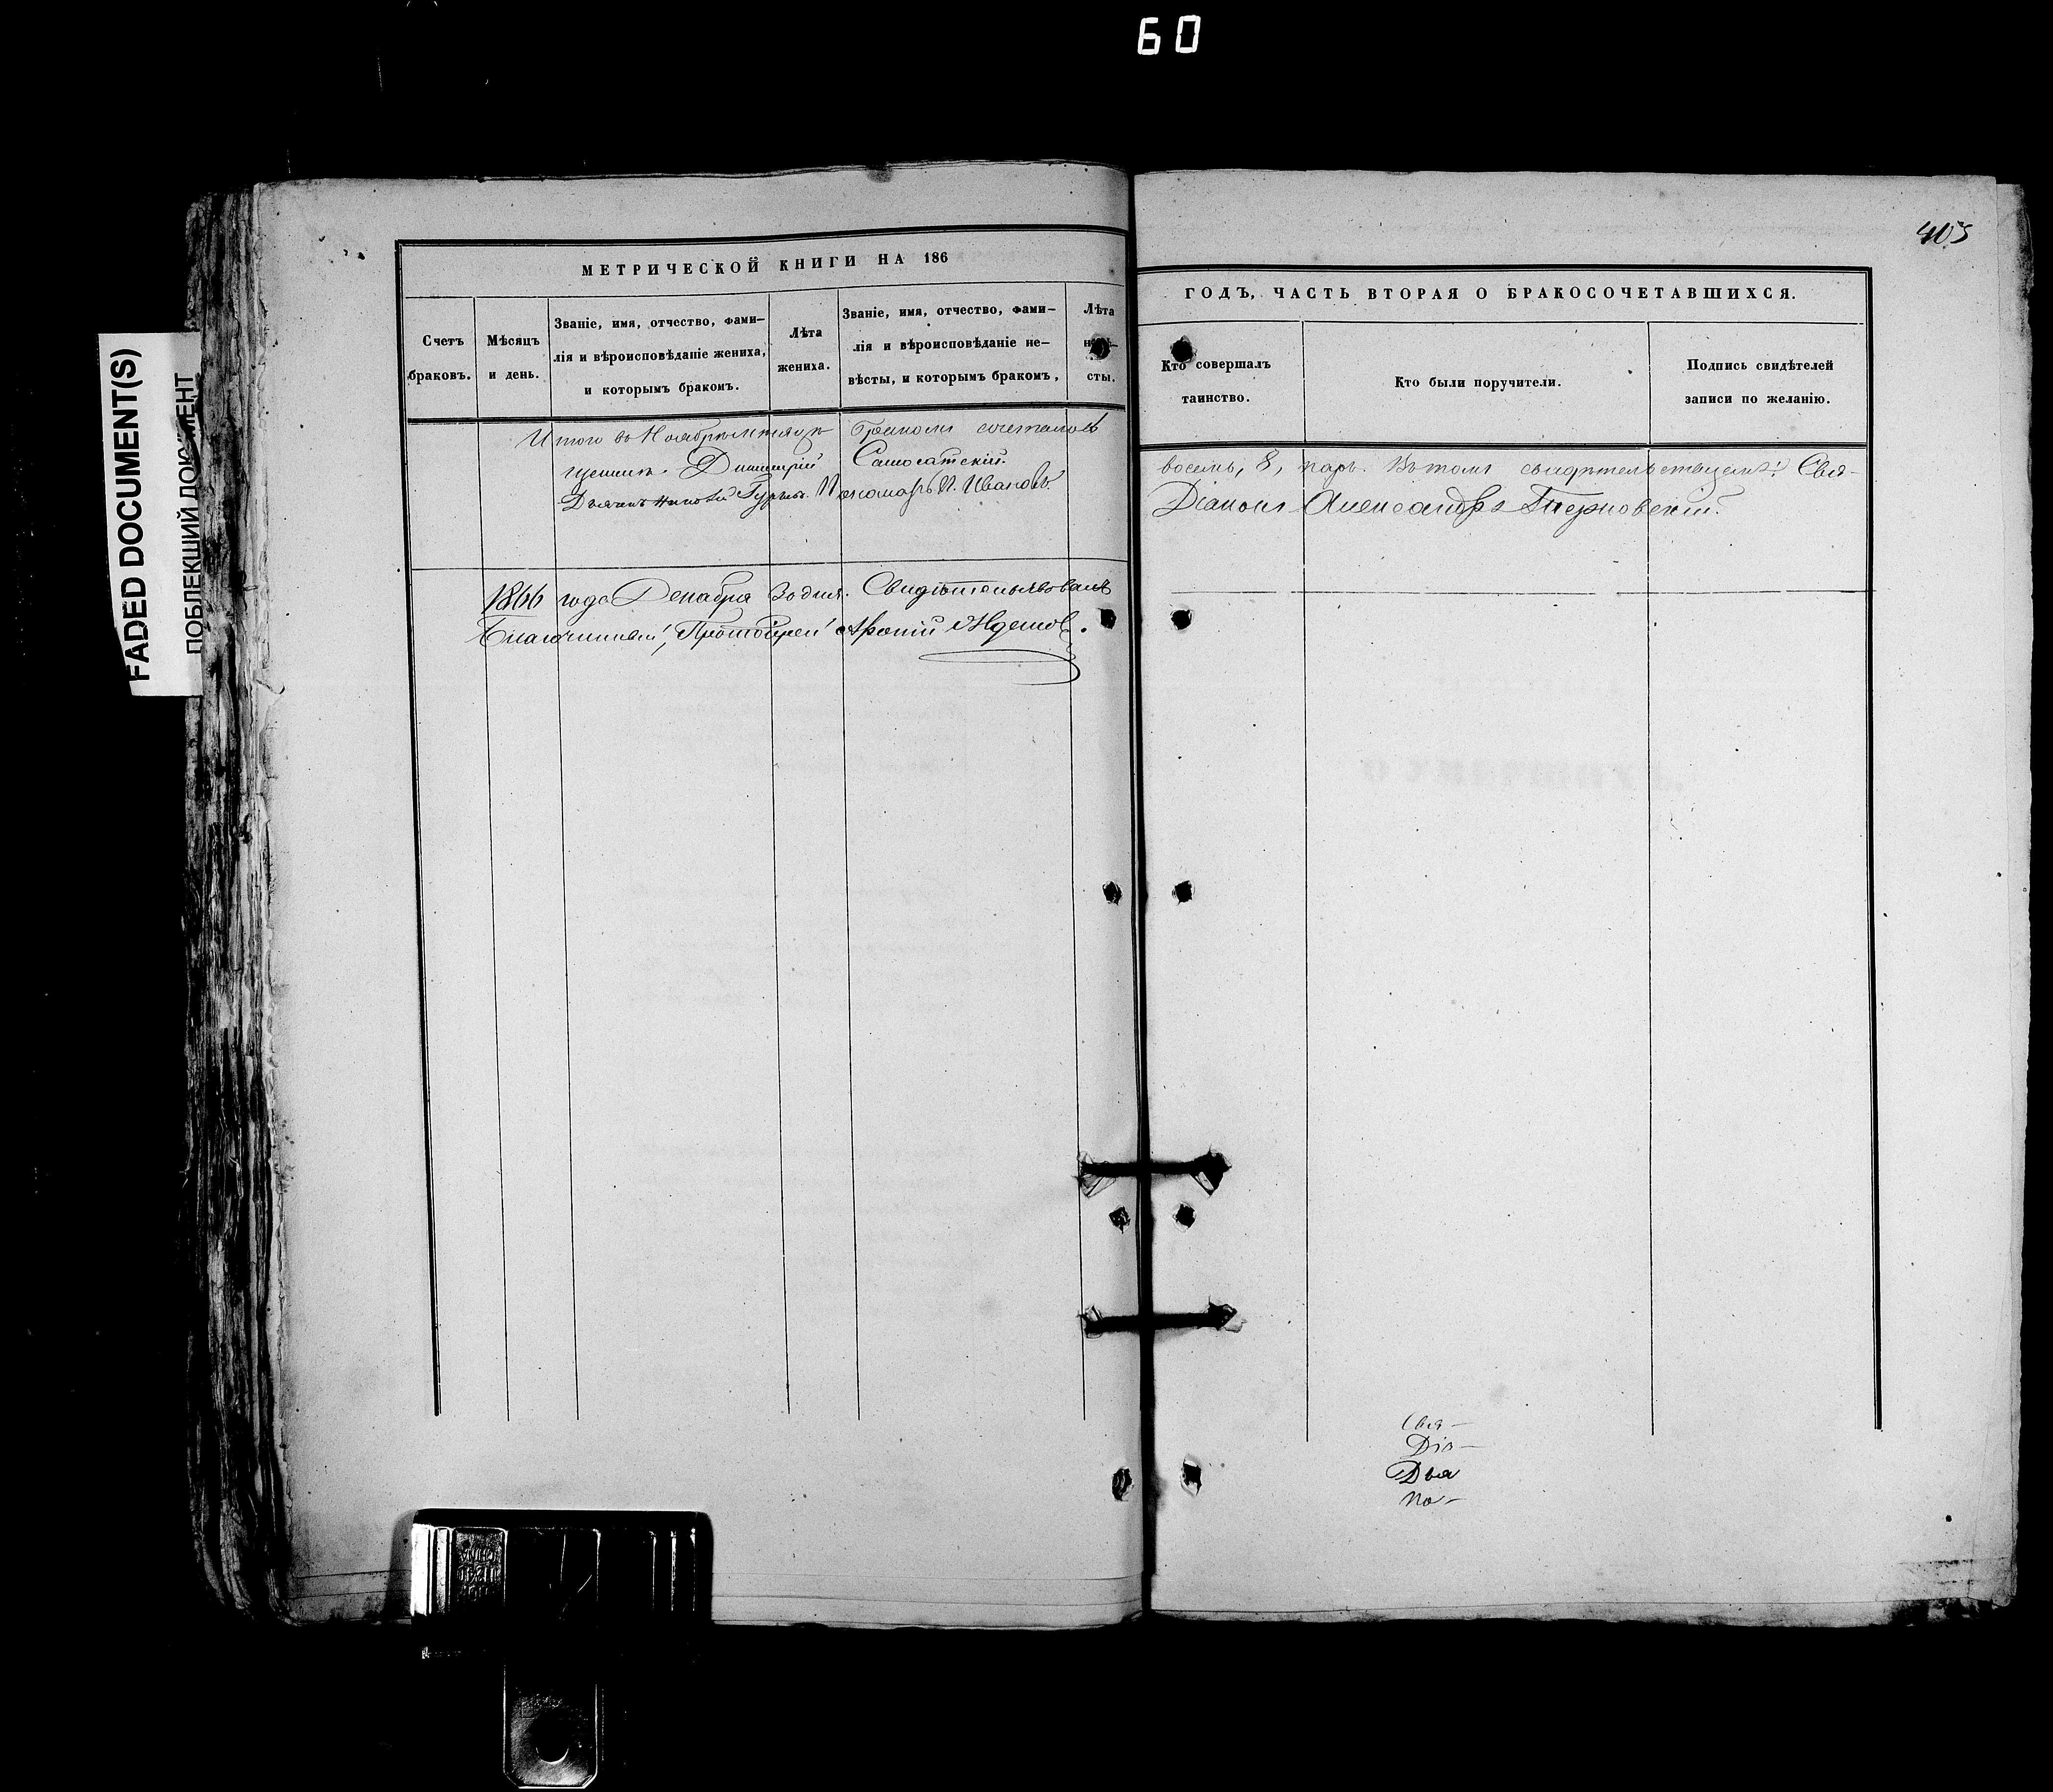 60
403
FADED DOCUMENT(S)
ПОБЛЕКШИЙ ДОКУМЕНТ
МЕТРИЧЕСКОЙ КНИГИ НА 186
Счетъ браковъ.
Мѣсяцъ и день.
Званіе, имя, отчество, фами-
лія и вѣроисповѣданіе жениха,
и которымъ бракомъ.
Лѣта
жениха.
Званіе, имя, отчество, фами-
лія и вѣроисповѣданіе не-
вѣсты, и которымъ бракомъ,
Лѣта
сты.
ГОДЪ, ЧАСТЬ ВТОРАЯ О БРАКОСОЧЕТАВШИХСЯ.
Кто совершалъ
таинство.
Кто были поручители.
Подпись свидѣтелей
записи по желанію.
Итого въ Ноябрѣ мѣсяцѣ бракомъ сочеталось
восемь, 8, паръ. Въ томъ свидѣтельствуемъ: Свя-
щенникъ Димитрій Самосатскій.
Діаконъ Александръ Терновскій.
Дьячекъ Гурьевъ. Пономарь И. Ивановъ.
1866 года Декабря 30 дня. Свидѣтельствовалъ
Благочинный, Протоіерей
Свя-
Діа-
Дья
По-